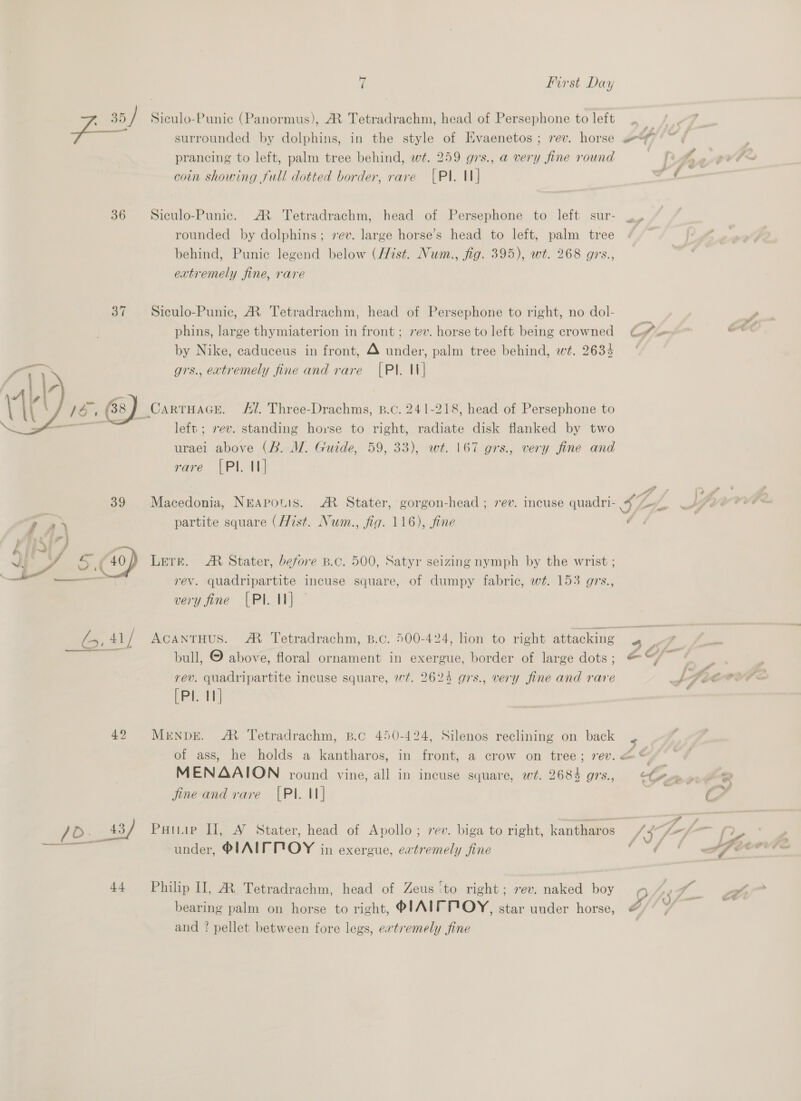 7 First Day
35 Siculo-Punic (Panormus), AR Tetradrachm, head of Persephone to left
surrounded by dolphins, in the style of Evaenetos; rev. horse
prancing to left, palm tree behind, wt. 259 grs., a very fine round
coin showing full dotted border, rare [Pl. II]
36 Siculo-Punic. AR Tetradrachm, head of Persephone to left sur-
rounded by dolphins; rev. large horse's head to left, palm tree
behind, Punic legend below (Hist. Num., fig. 395), wt. 268 grs.,
extremely fine, rare
37 Siculo-Punic, AR Tetradrachm, head of Persephone to right, no dol-
phins, large thymiaterion in front; rev. horse to left being crowned
by Nike, caduceus in front, A under, palm tree behind, wt. 263½
grs., extremely fine and rare [Pl. II]
38 CARTHAGE. El. Three-Drachms, B.C. 241-218, head of Persephone to
left; rev. standing horse to right, radiate disk flanked by two
uraei above (B. M. Guide, 59, 33), wt. 167 grs., very fine and
rare [Pl. II]
39 Macedonia, NEAPOLIS. AR Stater, gorgon-head; rev. incuse quadri-
partite square (Hist. Num., fig. 116), fine
40 LETE. AR Stater, before B.C. 500, Satyr seizing nymph by the wrist;
rev. quadripartite incuse square, of dumpy fabric, wt. 153 grs.,
very fine [Pl. II]
41 ACANTHUS. AR Tetradrachm, B.C. 500-424, lion to right attacking
bull, Θ above, floral ornament in exergue, border of large dots;
rev. quadripartite incuse square, wt. 262½ grs., very fine and rare
[Pl. II]
42 MENDE. AR Tetradrachm, B.C 450-424, Silenos reclining on back
of ass, he holds a kantharos, in front, a crow on tree; rev.
MENΔAION round vine, all in incuse square, wt. 268½ grs.,
fine and rare [Pl. II]
43 PHILIP II, AV Stater, head of Apollo; rev. biga to right, kantharos
under, ΦΙΛΙΓΓΟΥ in exergue, extremely fine
44 Philip II, AR Tetradrachm, head of Zeus to right; rev. naked boy
bearing palm on horse to right, ΦΙΛΙΓΓΟΥ, star under horse,
and ? pellet between fore legs, extremely fine